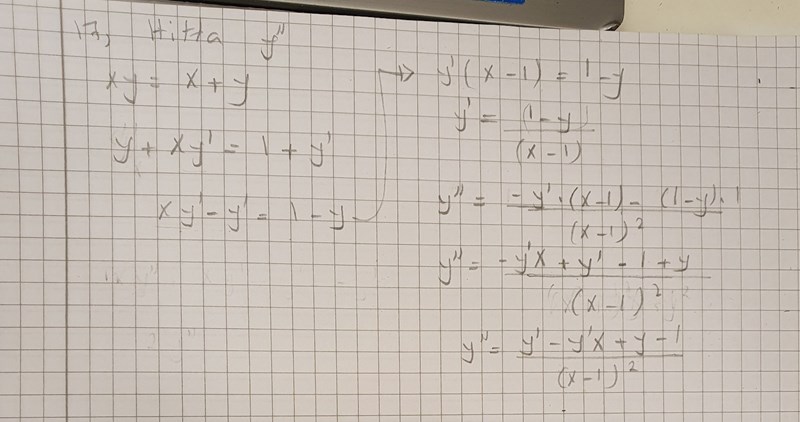 17, Hitta y"
xy = x + y
y + xy' = 1 + y'
xy' - y' = 1 - y
→ y'(x - 1) = 1 - y
y' = (1 - y) / (x - 1)
y" = -y' · (x-1) - (1-y) · 1 / (x-1)²
y" = -y'x + y' - 1 + y / (x-1)²
y" = y' - y'x + y - 1 / (x-1)²